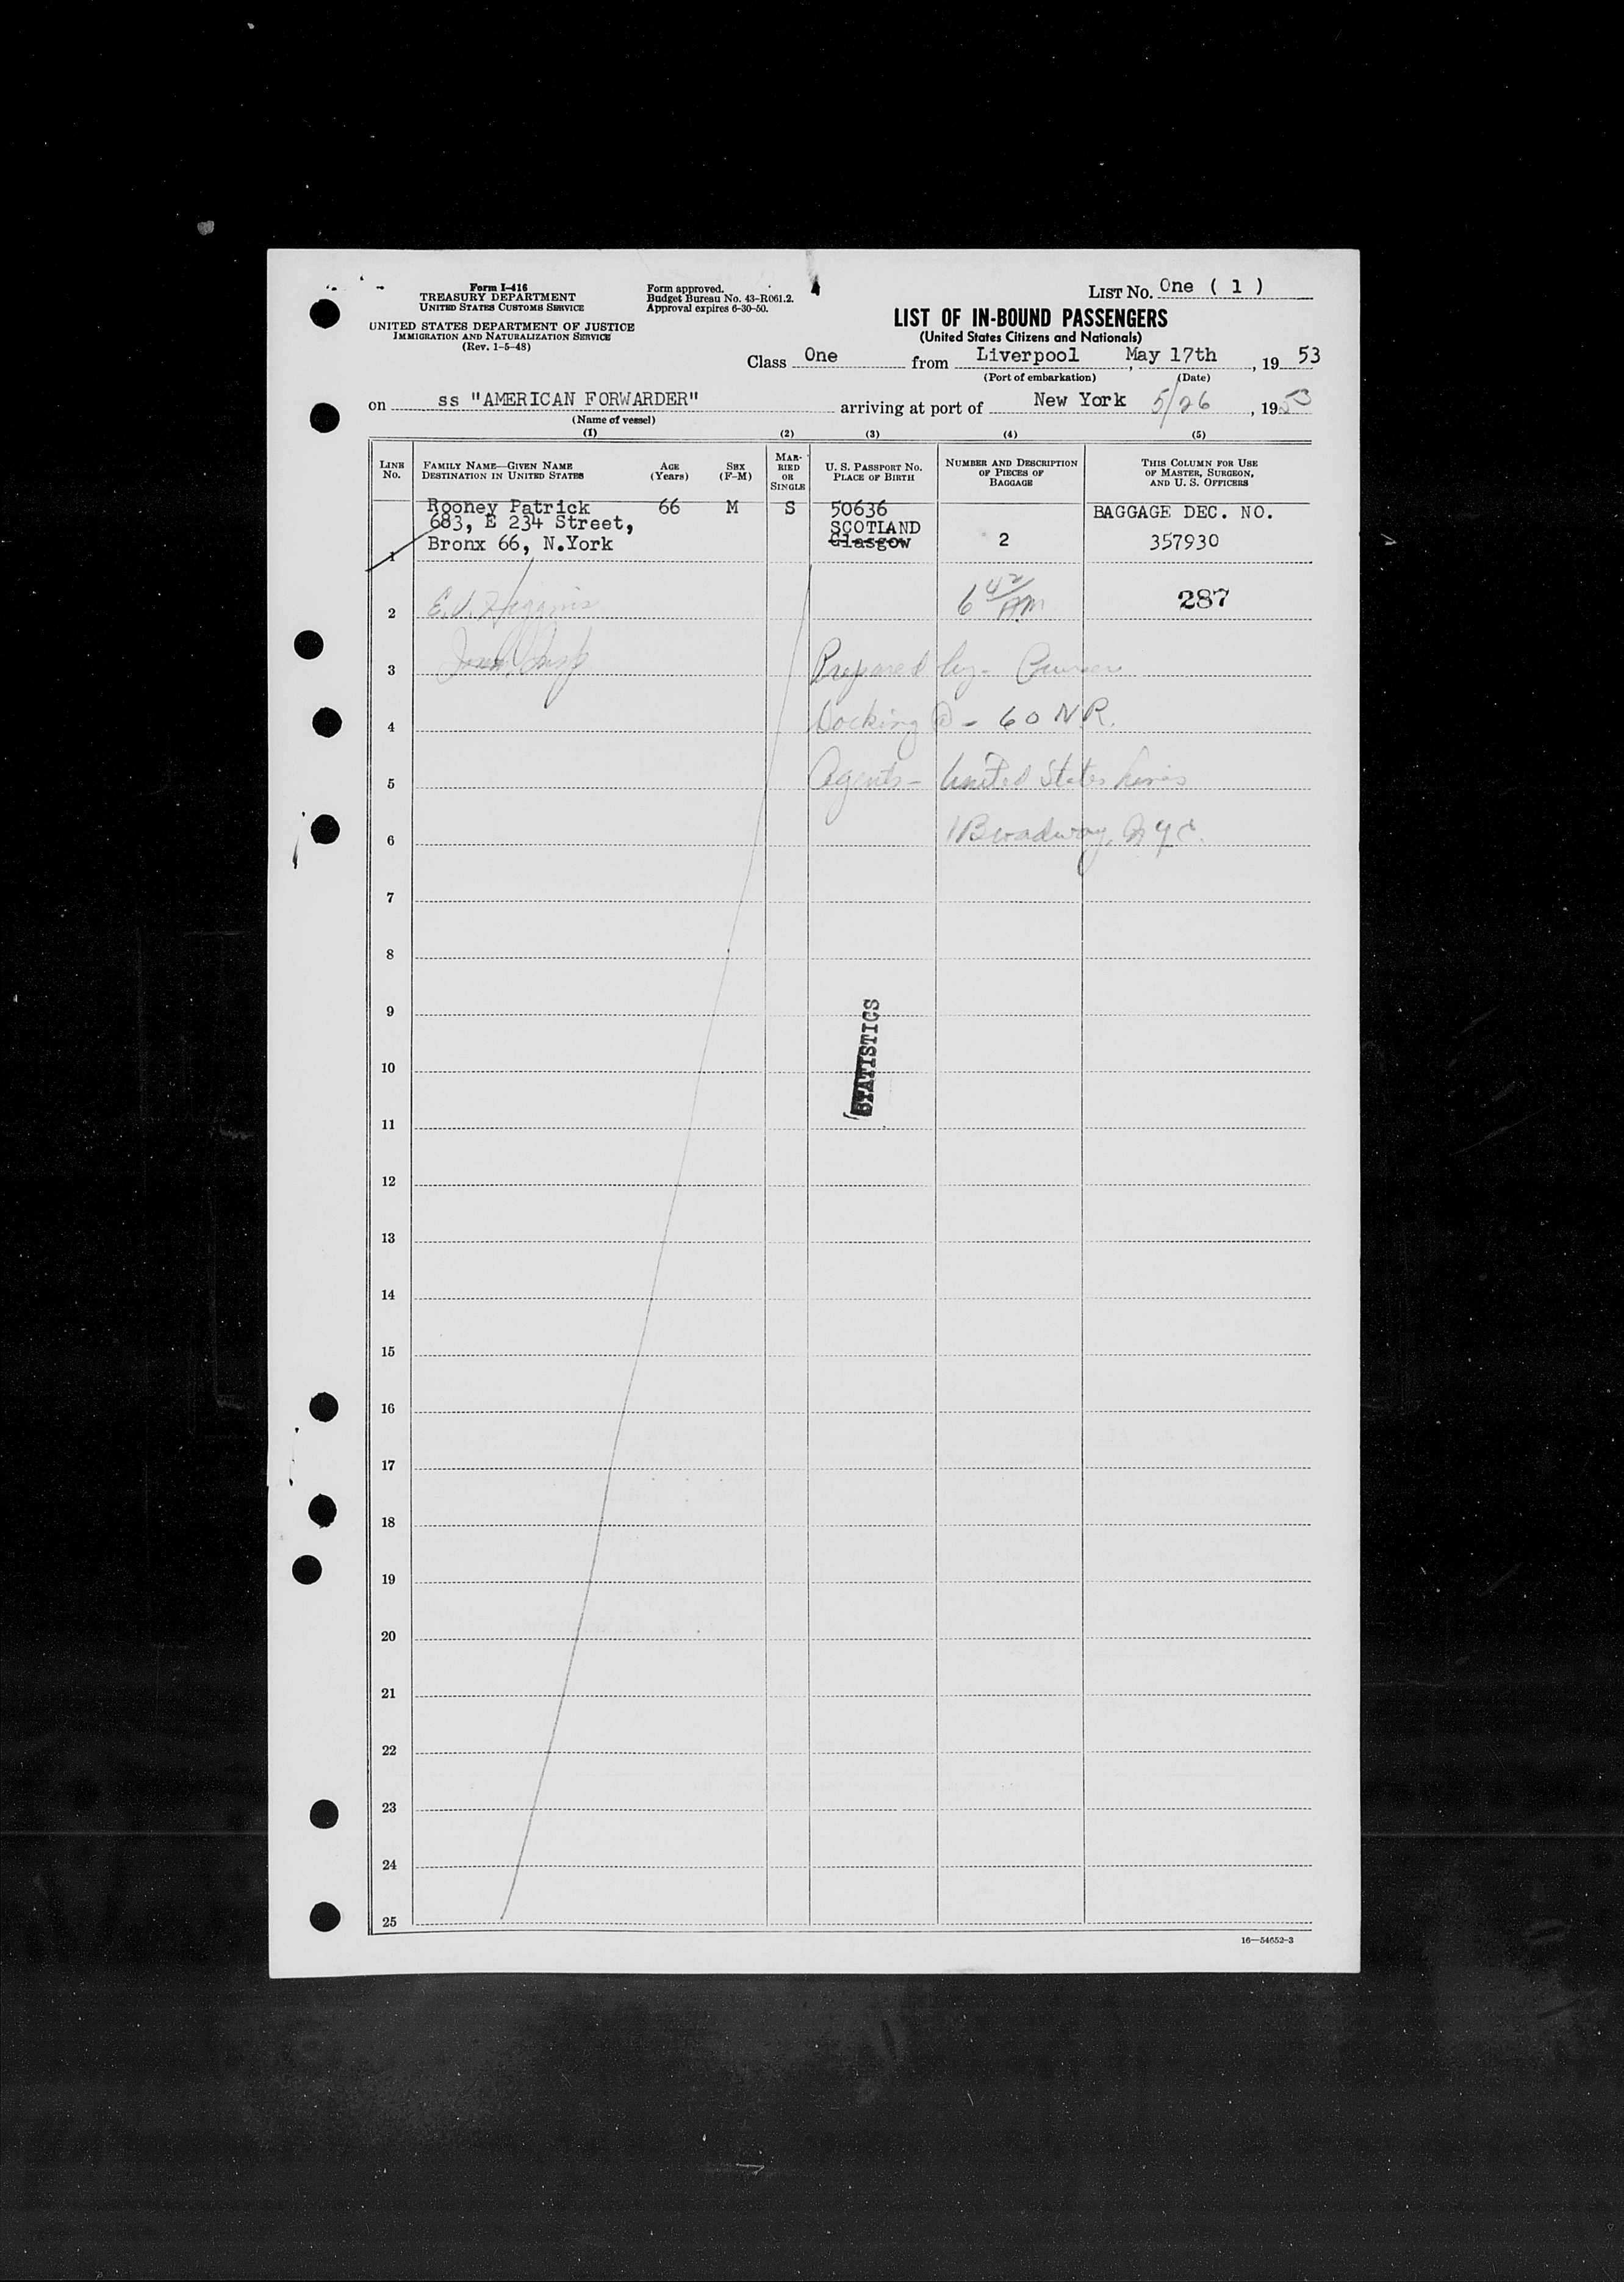 Form I-416
TREASURY DEPARTMENT
UNITED STATES CUSTOMS SERVICE
UNITED STATES DEPARTMENT OF JUSTICE
IMMIGRATION AND NATURALIZATION SERVICE
(Rev. 1-5-48)
Form approved.
Budget Bureau No. 43-R061.2.
Approval expires 6-30-50.
LIST NO. One ( 1 )
LIST OF IN-BOUND PASSENGERS
(United States Citizens and Nationals)
Class One from Liverpool, May 17th, 1953
(Port of embarkation) (Date)
on ss "AMERICAN FORWARDER" arriving at port of New York 5/26, 1953
(Name of vessel)
(1) (2) (3) (4) (5)
LINE NO.
FAMILY NAME—GIVEN NAME
DESTINATION IN UNITED STATES
AGE (Years)
SEX (F-M)
MARRIED OR SINGLE
U. S. PASSPORT NO.
PLACE OF BIRTH
NUMBER AND DESCRIPTION
OF PIECES OF
BAGGAGE
THIS COLUMN FOR USE
OF MASTER, SURGEON,
AND U. S. OFFICERS
Rooney Patrick 66 M S 50636 BAGGAGE DEC. NO.
683, E 234 Street, SCOTLAND
1 Bronx 66, N.York Glasgow 2 357930
2 E.V. Higgins 6 42/AM 287
3 Prepared by-
4 Docking @ - 60 N R.
5 Agents - United States Lines
6 1 Broadway, N Y C.
7
8
9
STATISTICS
10
11
12
13
14
15
16
17
18
19
20
21
22
23
24
25
16—54652-3